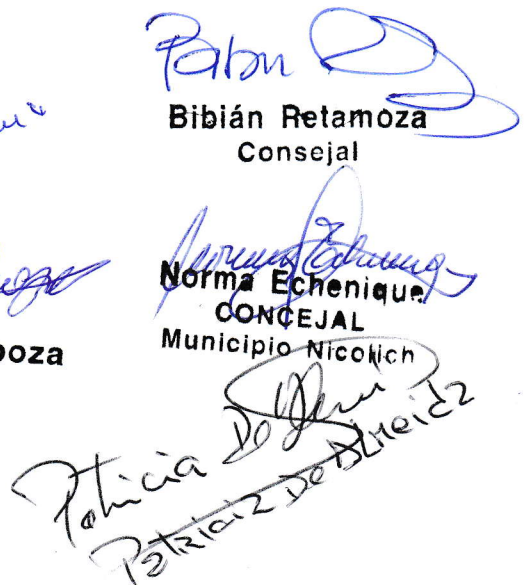 Bibián Retamoza
Consejal
Norma Echenique
CONCEJAL
Municipio Nicolich
oza
Patricia De
Patricia De Almeida